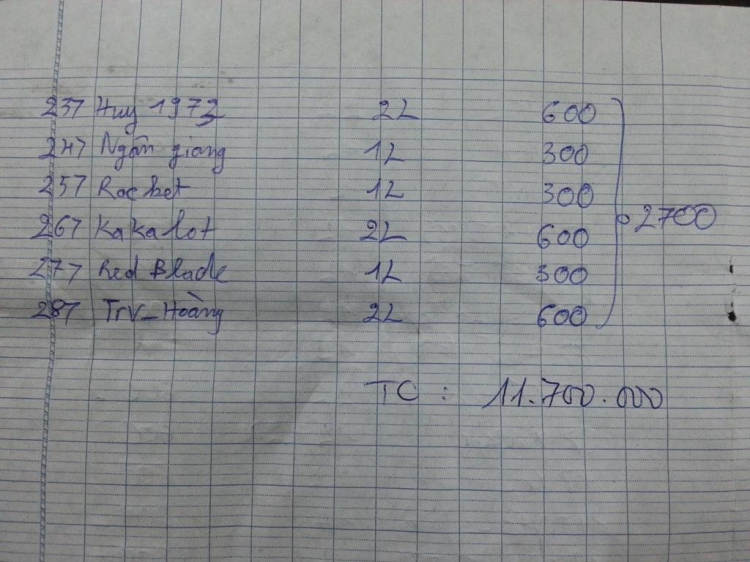 237 Huy 1973 2L 600
247 Ngân giang 1L 300
257 Rocket 1L 300
267 Kakalot 2L 600
277 Red Blade 1L 300
287 Trv_Hoàng 2L 600
2700
TC : 11.700.000